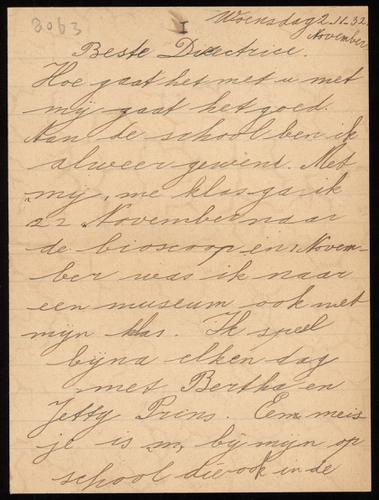 8063
I
Woensdag 2.11.32.
November
Beste Directrice.
Hoe gaat het met u met
mij gaat het goed.
Aan de school ben ik
alweer gewent. Met
mij, me klas ga ik
22 November naar
de bioscoop en 1 Novem-
ber was ik naar
een museum ook met
mijn klas. Ik speel
bijna elken dag
met Bertha en
Jetty Prins. Een meis
je is bij mijn op
school die ook in de